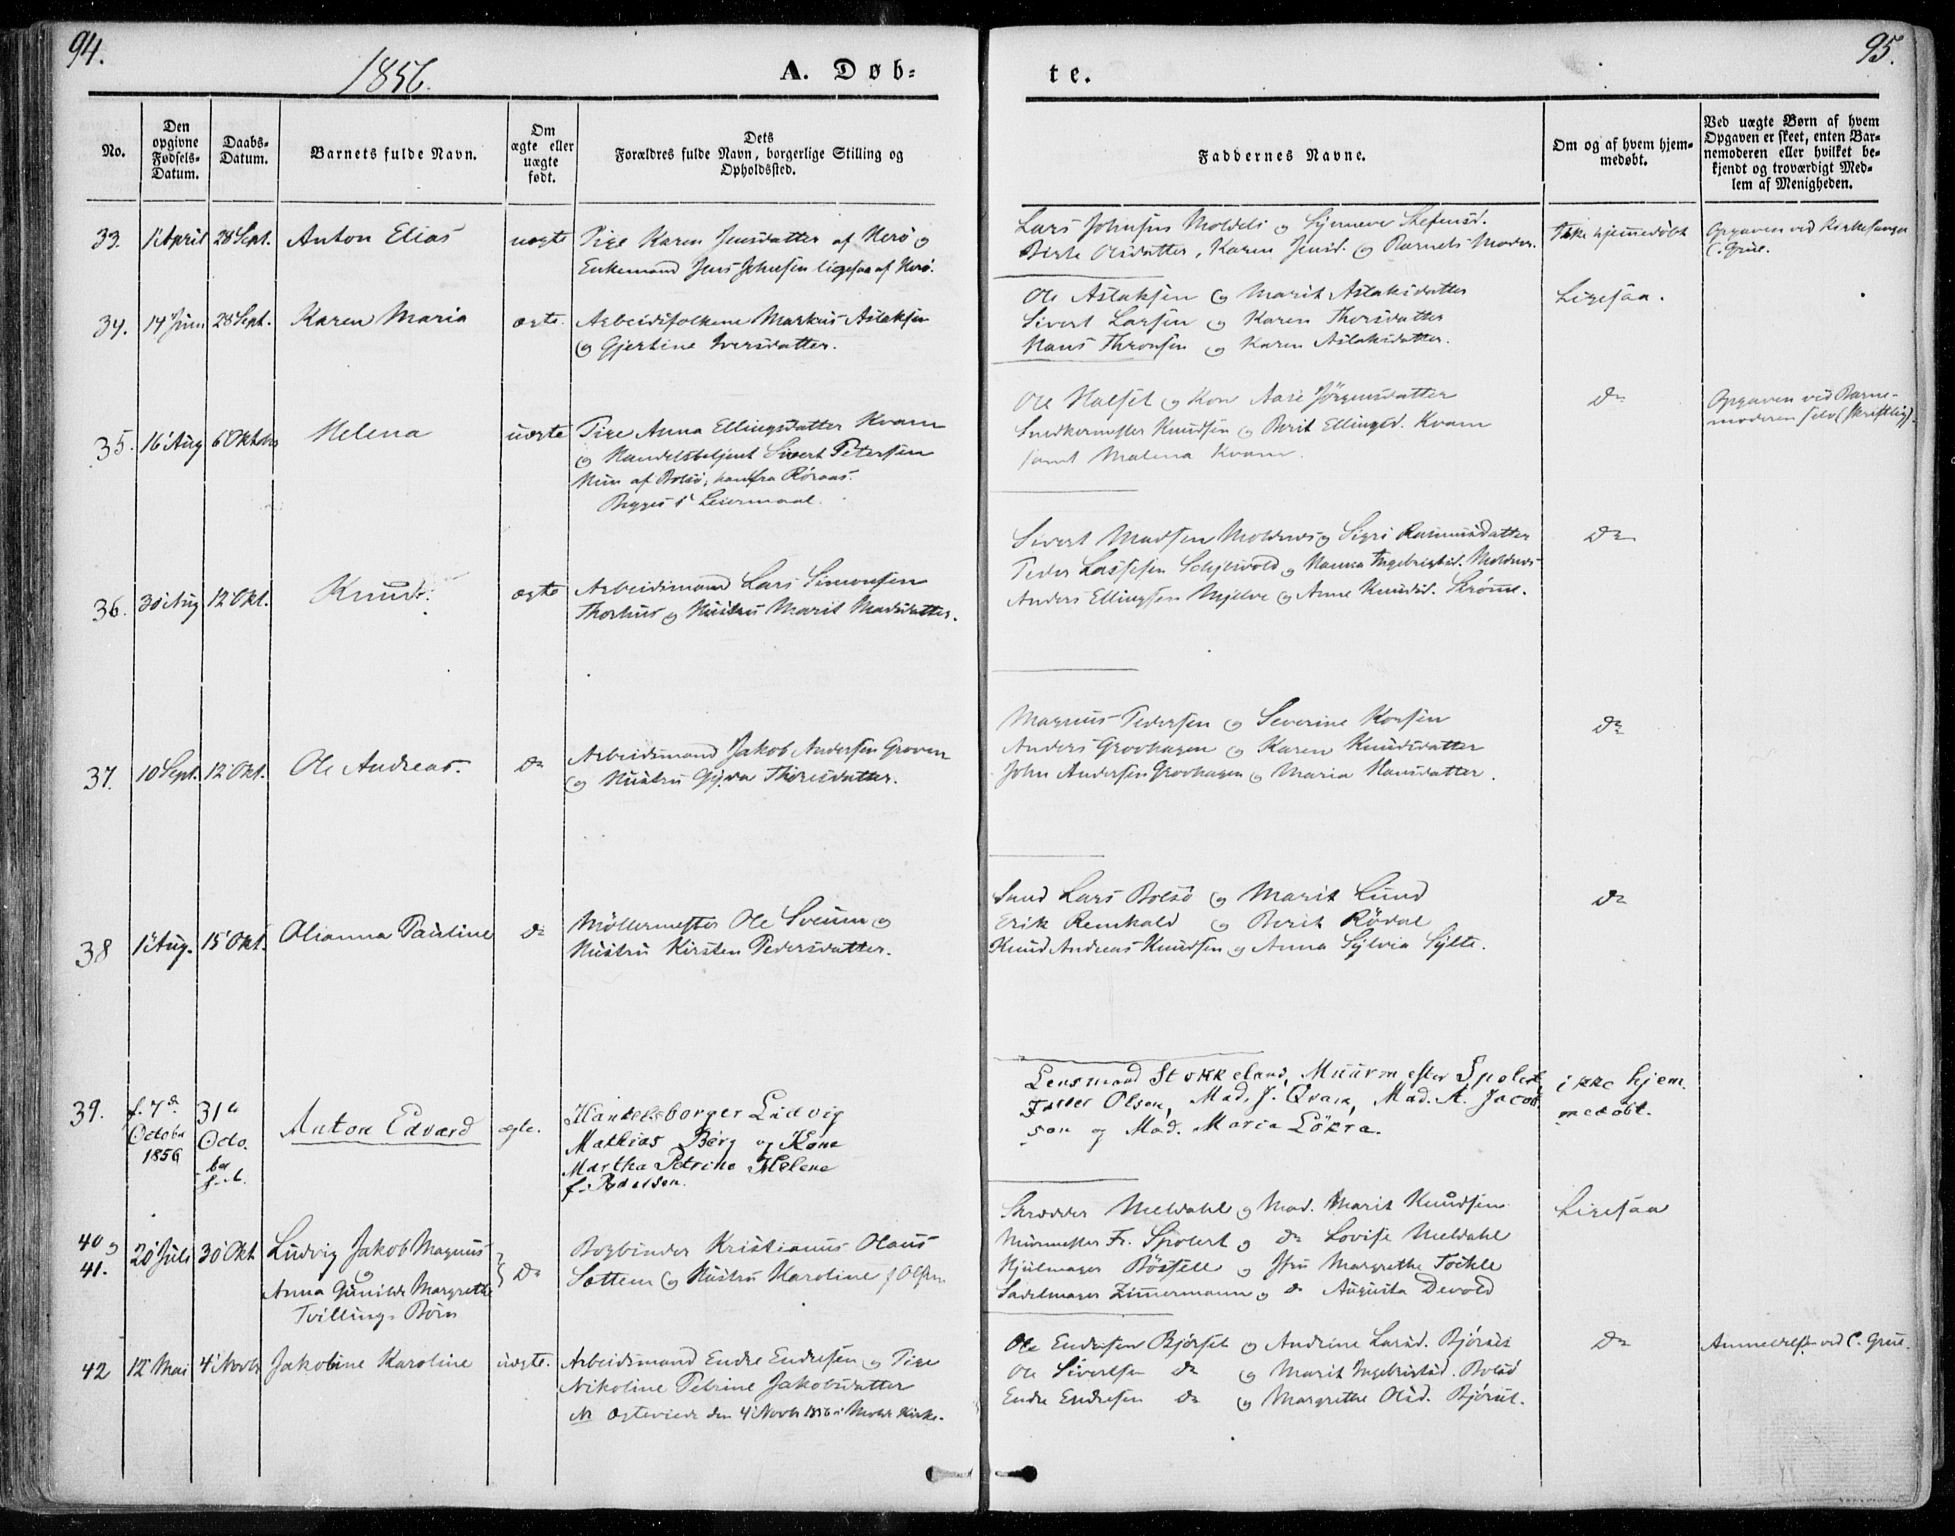 94.
1856.
A. Døb-
No.
Den opgivne Fødsels-Datum.
Daabs-Datum.
Barnets fulde Navn.
Om ægte eller uægte født.
Dets Forældres fulde Navn, borgerlige Stilling og Opholdssted.
33. 1 April 28 Sept. Anton Elias uægte Pige Karen Jensdatter af Herø og
Enkemand Jens Johnsen ligesaa af Herø.
34. 14 Juni 28 Sept. Karen Maria ægte. Arbeidsfolkene Markus Aslaksen
og Gjertine Iversdatter.
35. 16 Aug 6 Oktober Helena uægte Pige Anna Ellingsdatter Kvam
og Handelsbetjent Sivert Petersen
Hun af Bolsø, han fra Røraas.
Begges 1ste Leiermaal.
36. 30 Aug 12 Okt. Knud. ægte Arbeidsmand Lars Simonsen
Thorhus og Hustru Marit Madsdatter.
37. 10 Sept. 12 Okt. Ole Andreas. Do Arbeidsmand Jakob Andersen Groven
og Hustru Thoresdatter.
38 1 Aug. 15 Okt. Olianna Pauline Do Møllermester Ole Sveum og
Hustru Kirsten Pedersdatter.
39. f. 7de October 1856 31te October s. A. Anton Edvard ægte. Handelsborger Ludvig
Mathias Berg og Kone
Martha Petrine Helene
f. Pedersen.
40 og 41. 20 Juli 30 Okt Ludvig Jakob Magnus
og
Anna Gunilde Margrethe
Tvillings Børn
Do
Bogbinder Kristianus Olaus
Sættem og Hustru Karoline f Olsen
42 12 Mai 4 Novbr Jakobine Karoline uægte. Arbeidsmand Endre Endresen og Pige
Nikoline Petrine Jakobsdatter
NB Ægteviede den 4 Novbr 1856 i Molde Kirke.
te.
95.
Faddernes Navne.
Om og af hvem hjem-medøbt.
Ved uægte Børn af hvem Opgaven er skeet, enten Bar-nemoderen eller hvilket be-kjendt og troværdigt Med-lem af Menigheden.
Lars Johnsen Moldeli og Synneve Stefensd.
Berte Olsdatter, Karen Jensd. og Barnets Moder.
Ikke hjemmedøbt
Opgaven ved Kirkesanger
C. Grue.
Ole Aslaksen og Marit Aslaksdatter
Sivert Larsen og Karen Thorsdatter
Hans Thronsen og Karen Aslaksdatter.
Ligesaa.
Ole Halset og Kone Aase Jørgensdatter
Snedkermester Knudsen og Berit Ellingsd. Kvam
samt Malena Kvam.
Do
Opgaven ved Barne-
moderen selv (skriftlig).
Sivert Madsen Moldnes og Sigri Rasmusdatter
Peder Lassesen Schjevold og Hanna Ingebrigtsd. Moldnes
Anders Ellingsen Mjelve og Anne Knudsd. Strømme.
Do
Magnus Pedersen og Severine Korsen
Anders Grovhagen og Karen Knudsdatter
John Andersen Grovhagen og Maria Hansdatter.
Do
Lars Bolsø og Marit Lund
Erik Remkald og Berit Rødal
Knud Andreas Knudsen og Anna Sylvia Sylte.
Do
Lensmand Stokkeland, Muurmester Spolert,
Olsen, Mad. J. Qvam, Mad. A. Jacob-
sen og Mad. Maria Lökra.
ikke hjem-
medøbt.
Skrædder Meldahl og Mad. Marit Knudsen
Murmester Fr. Spolert og Do Lovise Meldahl
Hjulmager Bössell og Fru Margrethe Töckle
Sadelmager Zimmermann og Do Augusta Devold
Ligesaa
Ole Endresen Bjørset og Andrine Larsd. Bjørset
Ole Sivertsen Do og Marit Ingebrigtsd. Bolsø
Endre Endresen Do og Margrethe Olsd. Bjørset.
Do
Anmeldelsen ved C. Grue.